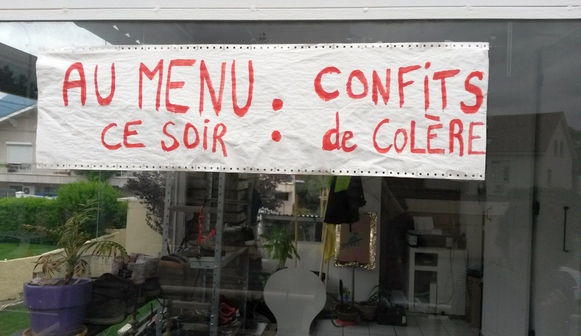 AU MENU : CONFiTS
CE SOiR de COLÈRE